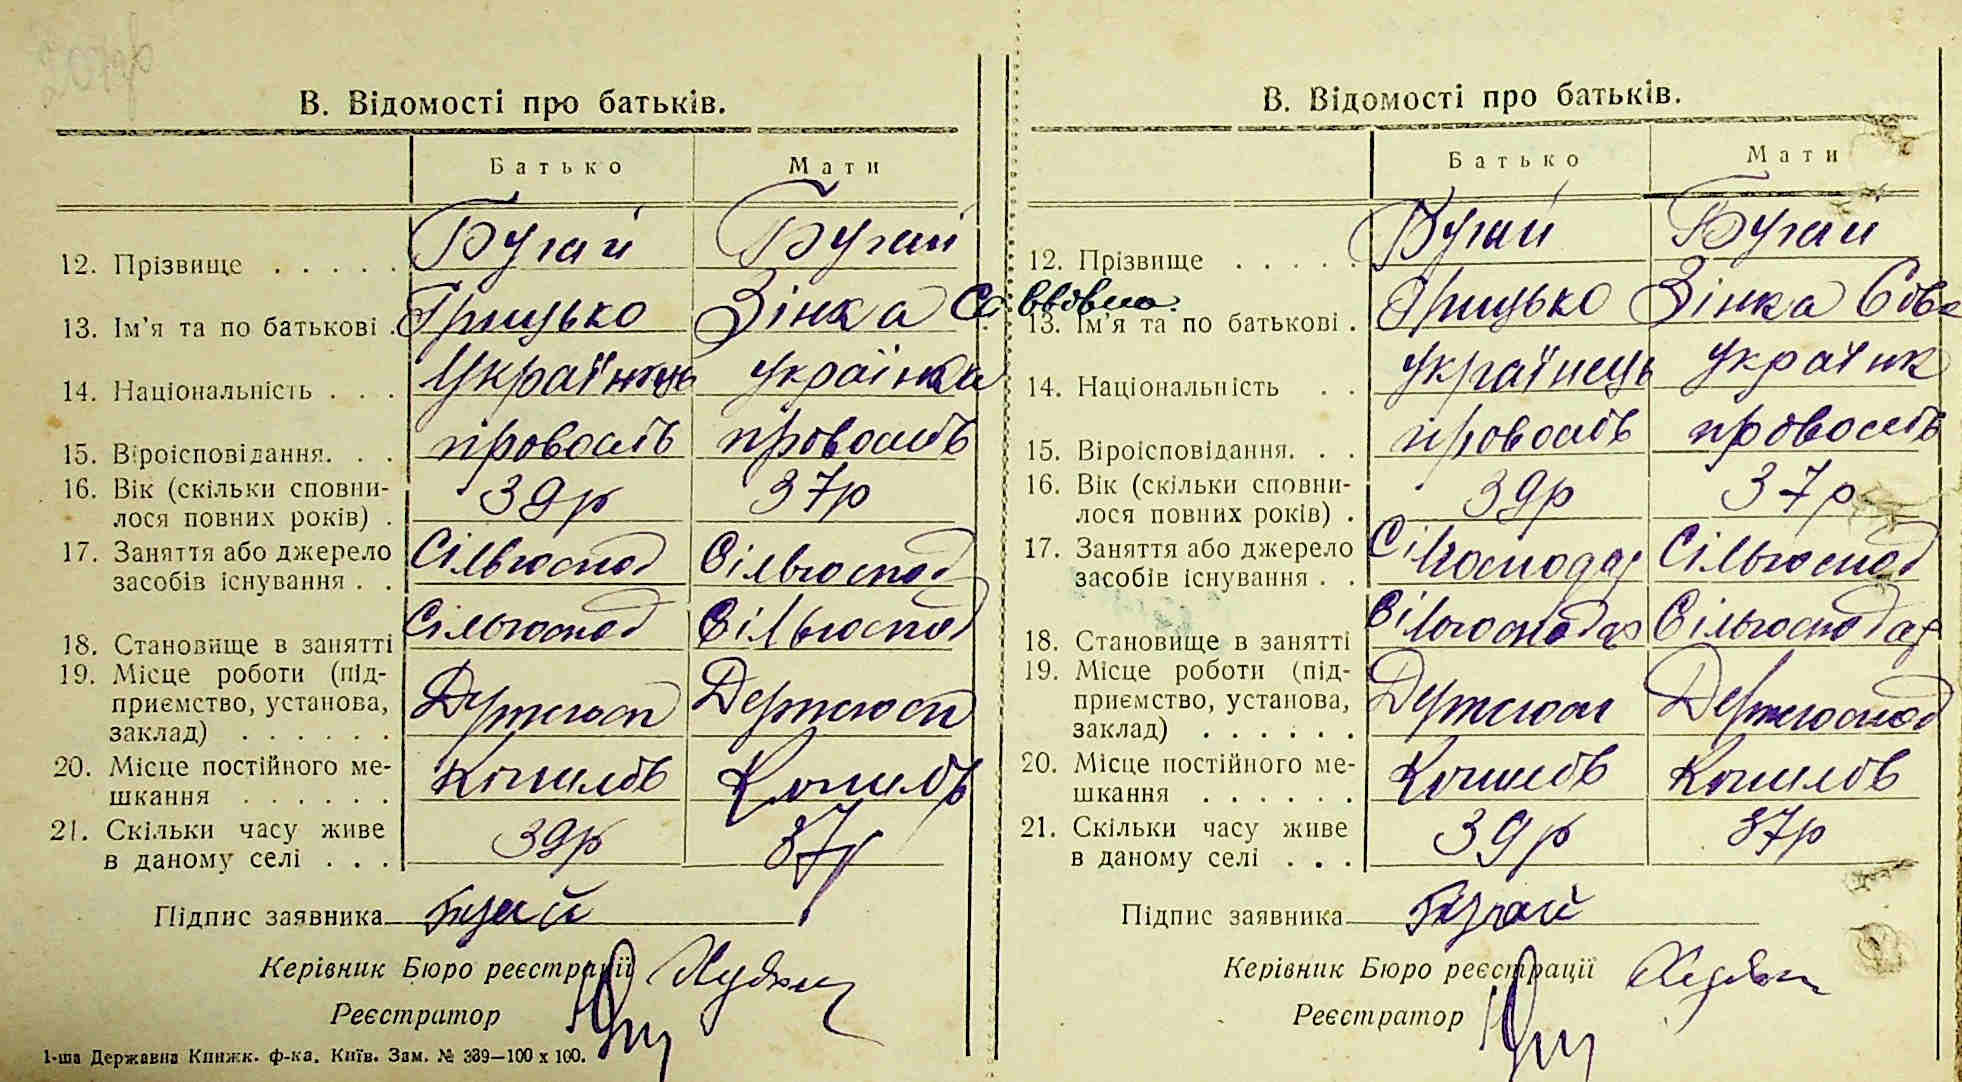 В. Відомості про батьків.
Батько Мати
12. Прізвище . . . . . Бугай Бугай
13. Ім'я та по батькові . Грицько Зінка Саввівна.
14. Національність . . . Українець українка
15. Віроісповідання. . . провослв провослв
16. Вік (скільки сповни-
лося повних років) . 39р 37р
17. Заняття або джерело
засобів існування . . Сільгоспод Сільгоспод
18. Становище в занятті Сільгоспод Сільгоспод
19. Місце роботи (під-
приємство, установа,
заклад) . . . . . .
20. Місце постійного ме-
шкання . . . . . . Копилов Копилов
21. Скільки часу живе
в даному селі . . . 39р 37р
Підпис заявника Бугай
Керівник Бюро реєстрації
Реєстратор
1-ша Державна Книжк. ф-ка. Київ. Зам. № 339—100 х 100.
В. Відомості про батьків.
Батько Мати
12. Прізвище . . . . . Бугай Бугай
13. Ім'я та по батькові . Грицько Зінка
14. Національність . . українець українк
15. Віроісповідання. . . провослв провослв
16. Вік (скільки сповни-
лося повних років) . 39р 37р
17. Заняття або джерело
засобів існування . . Сільгоспод
18. Становище в занятті Сільгосподар Сільгосподар
19. Місце роботи (під-
приємство, установа,
заклад) . . . . . .
20. Місце постійного ме-
шкання . . . . . . Копилов Копилов
21. Скільки часу живе
в даному селі . . . 39р 37р
Підпис заявника Бугай
Керівник Бюро реєстрації
Реєстратор